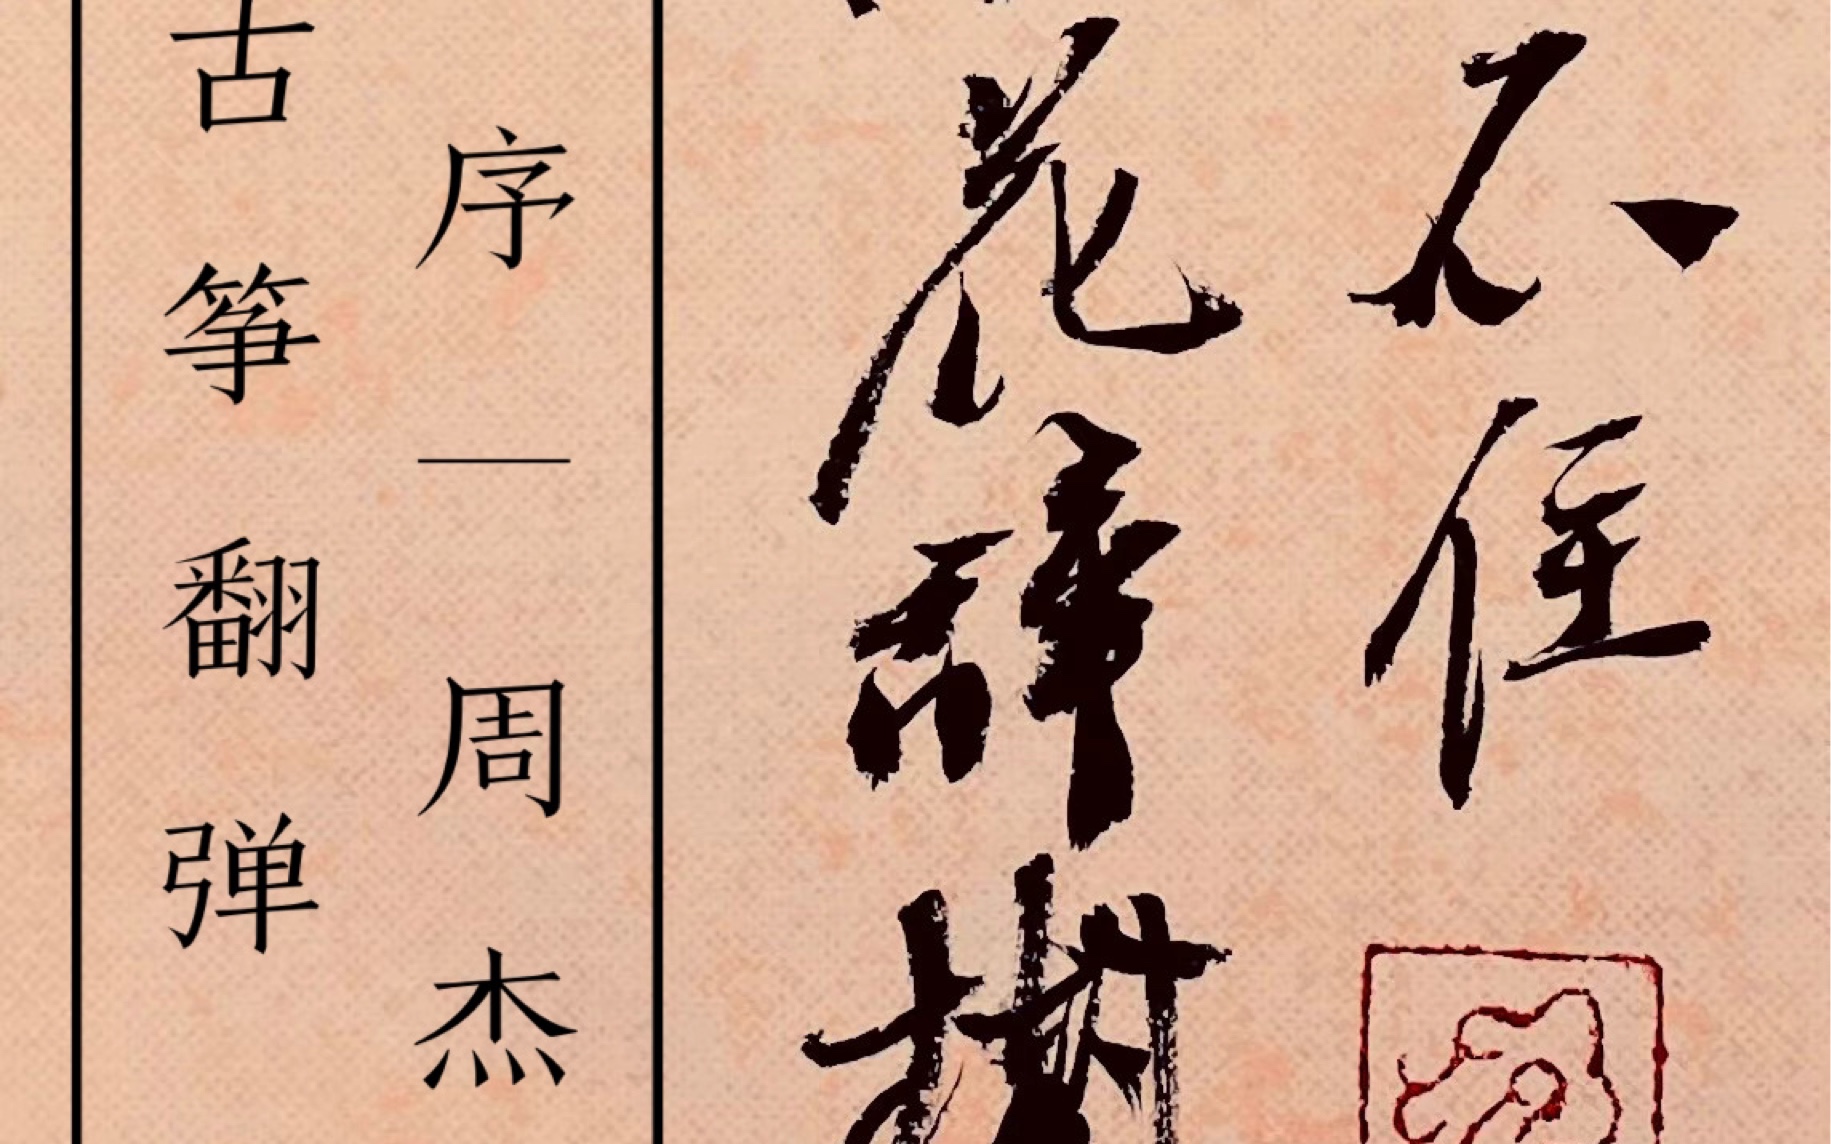 不住
花辭樹
序—周杰
古筝翻弹